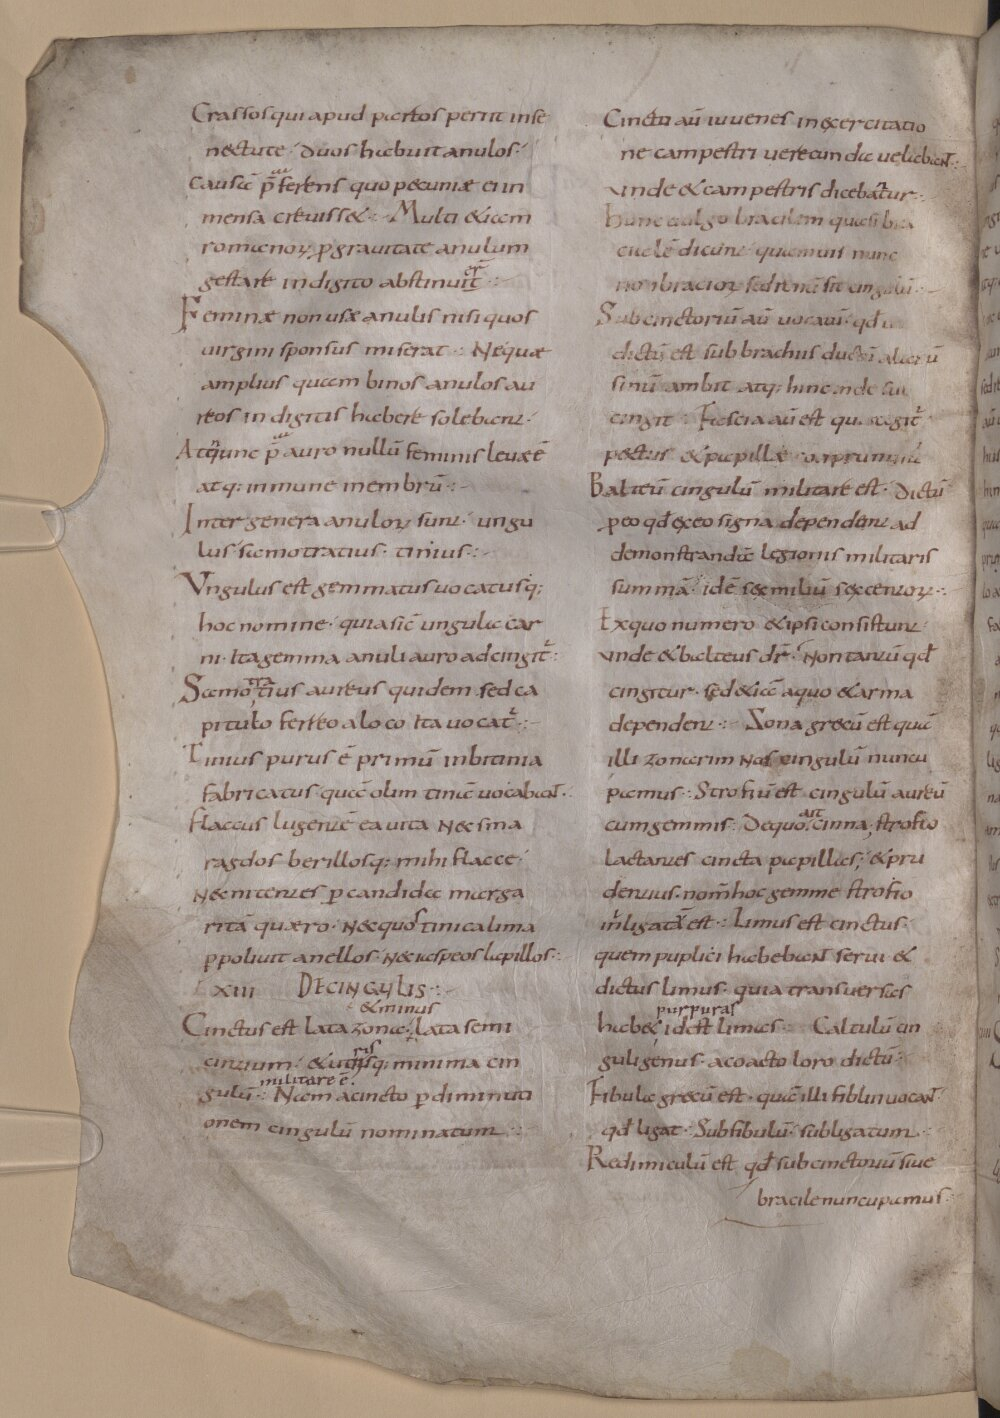 Crassos qui apud partos periit in se
nectute · duos habuit anulos ·
causā p̄ferens quo pecuniæ ei in
mensa crevisset · Multi etiam
romanoꝝ ꝑ gravitate anulum
gestare in digito abstinuer̄t
Feminæ non usæ anulis nisi quos
virgini sponsus miserat · Neque
amplius quam binos anulos au
reos in digitis habere solebant ·
Atq; nunc p̄ auro nullū feminis leve ē
atq; inmune membrū ·
Inter genera anuloꝝ sunt · ungu
lus · samotratius · tinius ·
Ungulus est gemmatus vocatusq;
hoc nomine · quia sic ungula car
ni · Ita gemma anuli auro adcingit̄ ·
Samotratius aureus quidem · sed ca
pitulo ferreo a loco ita vocat̄ ·
Tinius purus ē primū in bitinia
fabricatus quā olim tinā vocabant ·
flaccus lugentē ea vita Nec sma
ragdos berillosq; mihi flacce ·
Nec nitentes ꝑ candida marga
ritā quæro · Nec quos tinica lima
ꝑpolivit anellos · Nec iaspeos lapillos ·
XIII DE CINGULIS ·
Cinctus est lata zona · & minus lata semi
cinzium · & utrisq; minima cin
gulū · Nam a cincto ꝑ diminuti
onem cingulū nominatum
Cincti aū iuvenes in exercitatio
ne campestri verecunda velabant ·
unde & campestris dicebatur ·
Hunc vulgo bracilem quasi bra
cule dicunt quamvis nunc
non bracioꝝ sed renū sit cingulū ·
Subcinctoriū aū vocatū · qd̄
dictū est sub brachiis ductū alaꝝ
sinū ambit atq; hinc inde
cingit · Fascia aū est qua tegit̄
pectus & papillæ conprimuntur
Balteū cingulū militare est · dictū
ꝓ eo qd̄ ex eo signa dependent ad
demonstrandā legionis militaris
summā · idē sex miliū sexcentoꝝ ·
Ex quo numero & ipsi consistunt ·
unde & balteus dr̄ · Non tantū qd̄
cingitur · sed etiā a quo & arma
dependent · Zona grecū est quā
illi zonarim Nos cingulū nuncu
pamus · Strofiū est cingulū aureū
cum gemmis · De quo ait cinna strofio
lactantes cincta papillas · & pru
dentius · nomen hoc gemme strofio
ligata est · Limus est cinctus ·
quem puplici habebant servi &
dictus limus · quia transversas
habet purpuras id est limas · Caltulū cin
guli genus · a coacto loro dictū ·
Fibula grecū est · quā illi fiblin vocant
qd̄ ligat · Subfibulū · subligatum
Redimiculū est qd̄ subcinctoriū sive
bracile nuncupamus ·